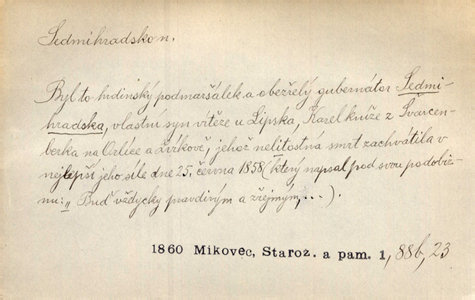 Sedmihradsko n.
Byl to hrdinský podmaršálek a obezřelý gubernátor Sedmi-
hradska, vlastní syn vítěze u Lipska, Karel kníže z Švarcen-
berka na Orlíce a Zvíkově, jehož nelítostná smrt zachvátila v
nejlepší jeho síle dne 25. června 1858 (který napsal pod svou podobiz-
nu: „Buď vždycky pravdivým a zřejmým,...).
1860 Mikovec, Starož. a pam. 1, 88b, 23